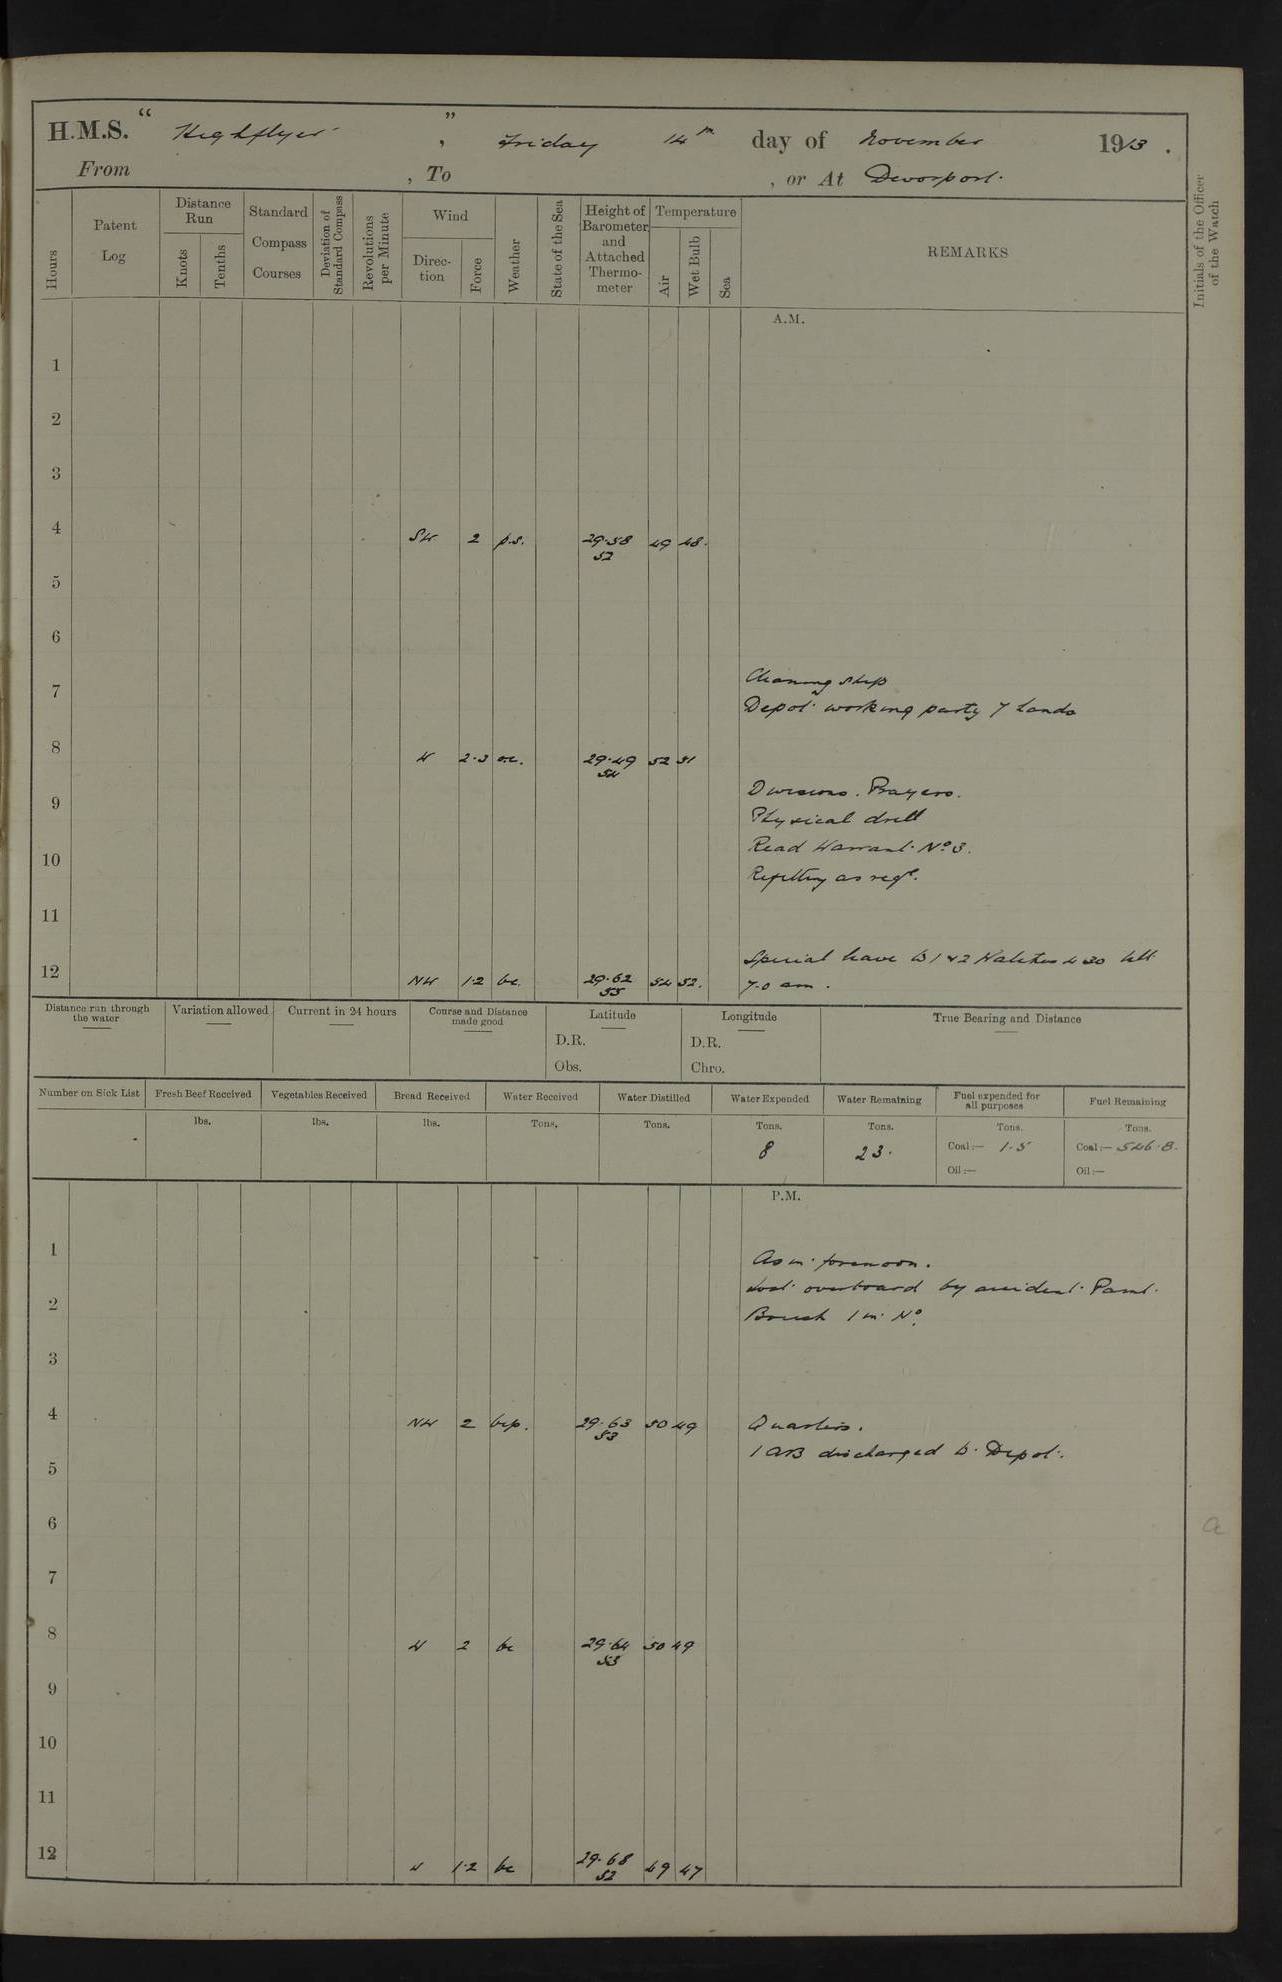 H.M.S. " Highflyer ", Friday 14th day of November 1913.
From , To , or At Devonport.
Hours
Patent Log
Distance Run
Knots
Tenths
Standard Compass Courses
Deviation of Standard Compass
Revolutions per Minute
Wind
Direction
Force
Weather
State of the Sea
Height of Barometer and Attached Thermometer
Temperature
Air
Wet Bulb
Sea
REMARKS
Initials of the Officer of the Watch
A.M.
1
2
3
4 SW 2 p.s. 29.58 49 48.
52
5
6
7 Cleaning ship
Depot working party 7 hands
8 W 2.3 oc. 29.49 52 51
54
9 Divisions. Prayers.
Physical drill
10 Read Warrant No 3.
Refitting as reqd.
11
12 NW 1.2 bc. 29.62 54 52. Special leave to 1 & 2 Watches 4 30 till
55 7.0 am.
Distance run through the water
Variation allowed
Current in 24 hours
Course and Distance made good
Latitude
D.R.
Obs.
Longitude
D.R.
Chro.
True Bearing and Distance
Number on Sick List
Fresh Beef Received
lbs.
Vegetables Received
lbs.
Bread Received
lbs.
Water Received
Tons.
Water Distilled
Tons.
Water Expended
Tons.
8
Water Remaining
Tons.
23.
Fuel expended for all purposes
Tons.
Coal:— 1.5
Oil:—
Fuel Remaining
Tons.
Coal:— 546.8.
Oil:—
P.M.
1 As in forenoon.
Lost overboard by accident Paint
2 Brush 1 in No.
3
4 NW 2 bcp. 29.63 50 49 Quarters.
53 1 AB discharged to Depot.
5
6
7
8 W 2 bc 29.64 50 49
53
9
10
11
12 W 1.2 bc 29.68 49 47
52